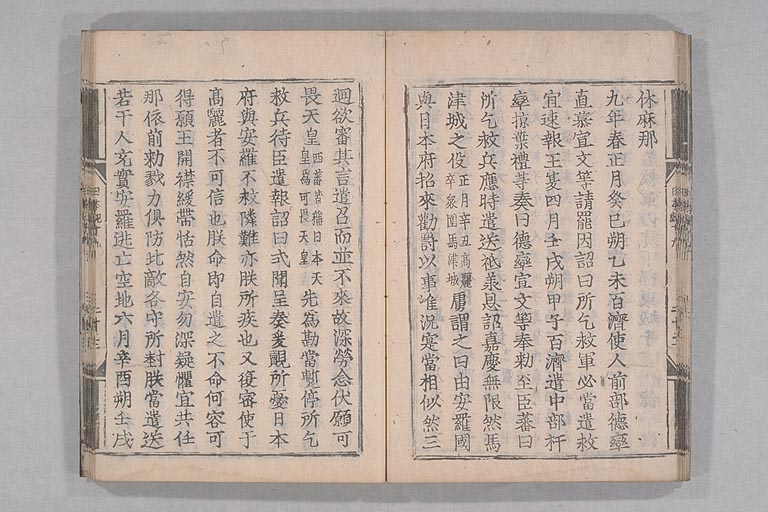 休麻那
九年春正月癸巳朔乙未百濟使人前部德率
真慕宣文等請罷因詔曰所乞救軍必當遣救
宜速報王夏四月壬戌朔甲子百濟遣中部扞
率掠葉禮等奏曰德率宣文等奉勅至臣蕃曰
所乞救兵應時遣送祗羕恩詔嘉慶無限然馬
津城之役正月辛丑高麗卒衆圍馬津城虜謂之曰由安羅國
與日本府招來勸罸以事准況寔當相似然三
迴欲審其言遣召而並不來故深勞念伏願可
畏天皇西蕃皆稱日本天皇爲可畏天皇先爲勘當暫停所乞
救兵待臣遣報詔曰式聞呈奏爰覩所憂日本
府與安羅不救隣難亦朕所疾也又復密使于
高麗者不可信也朕命即自遣之不命何容可
得願王開襟緩帶恬然自安勿深疑懼宜共任
那依前勅戮力俱防此敵各守所封朕當遣送
若干人充實安羅逃亡空地六月辛酉朔壬戌